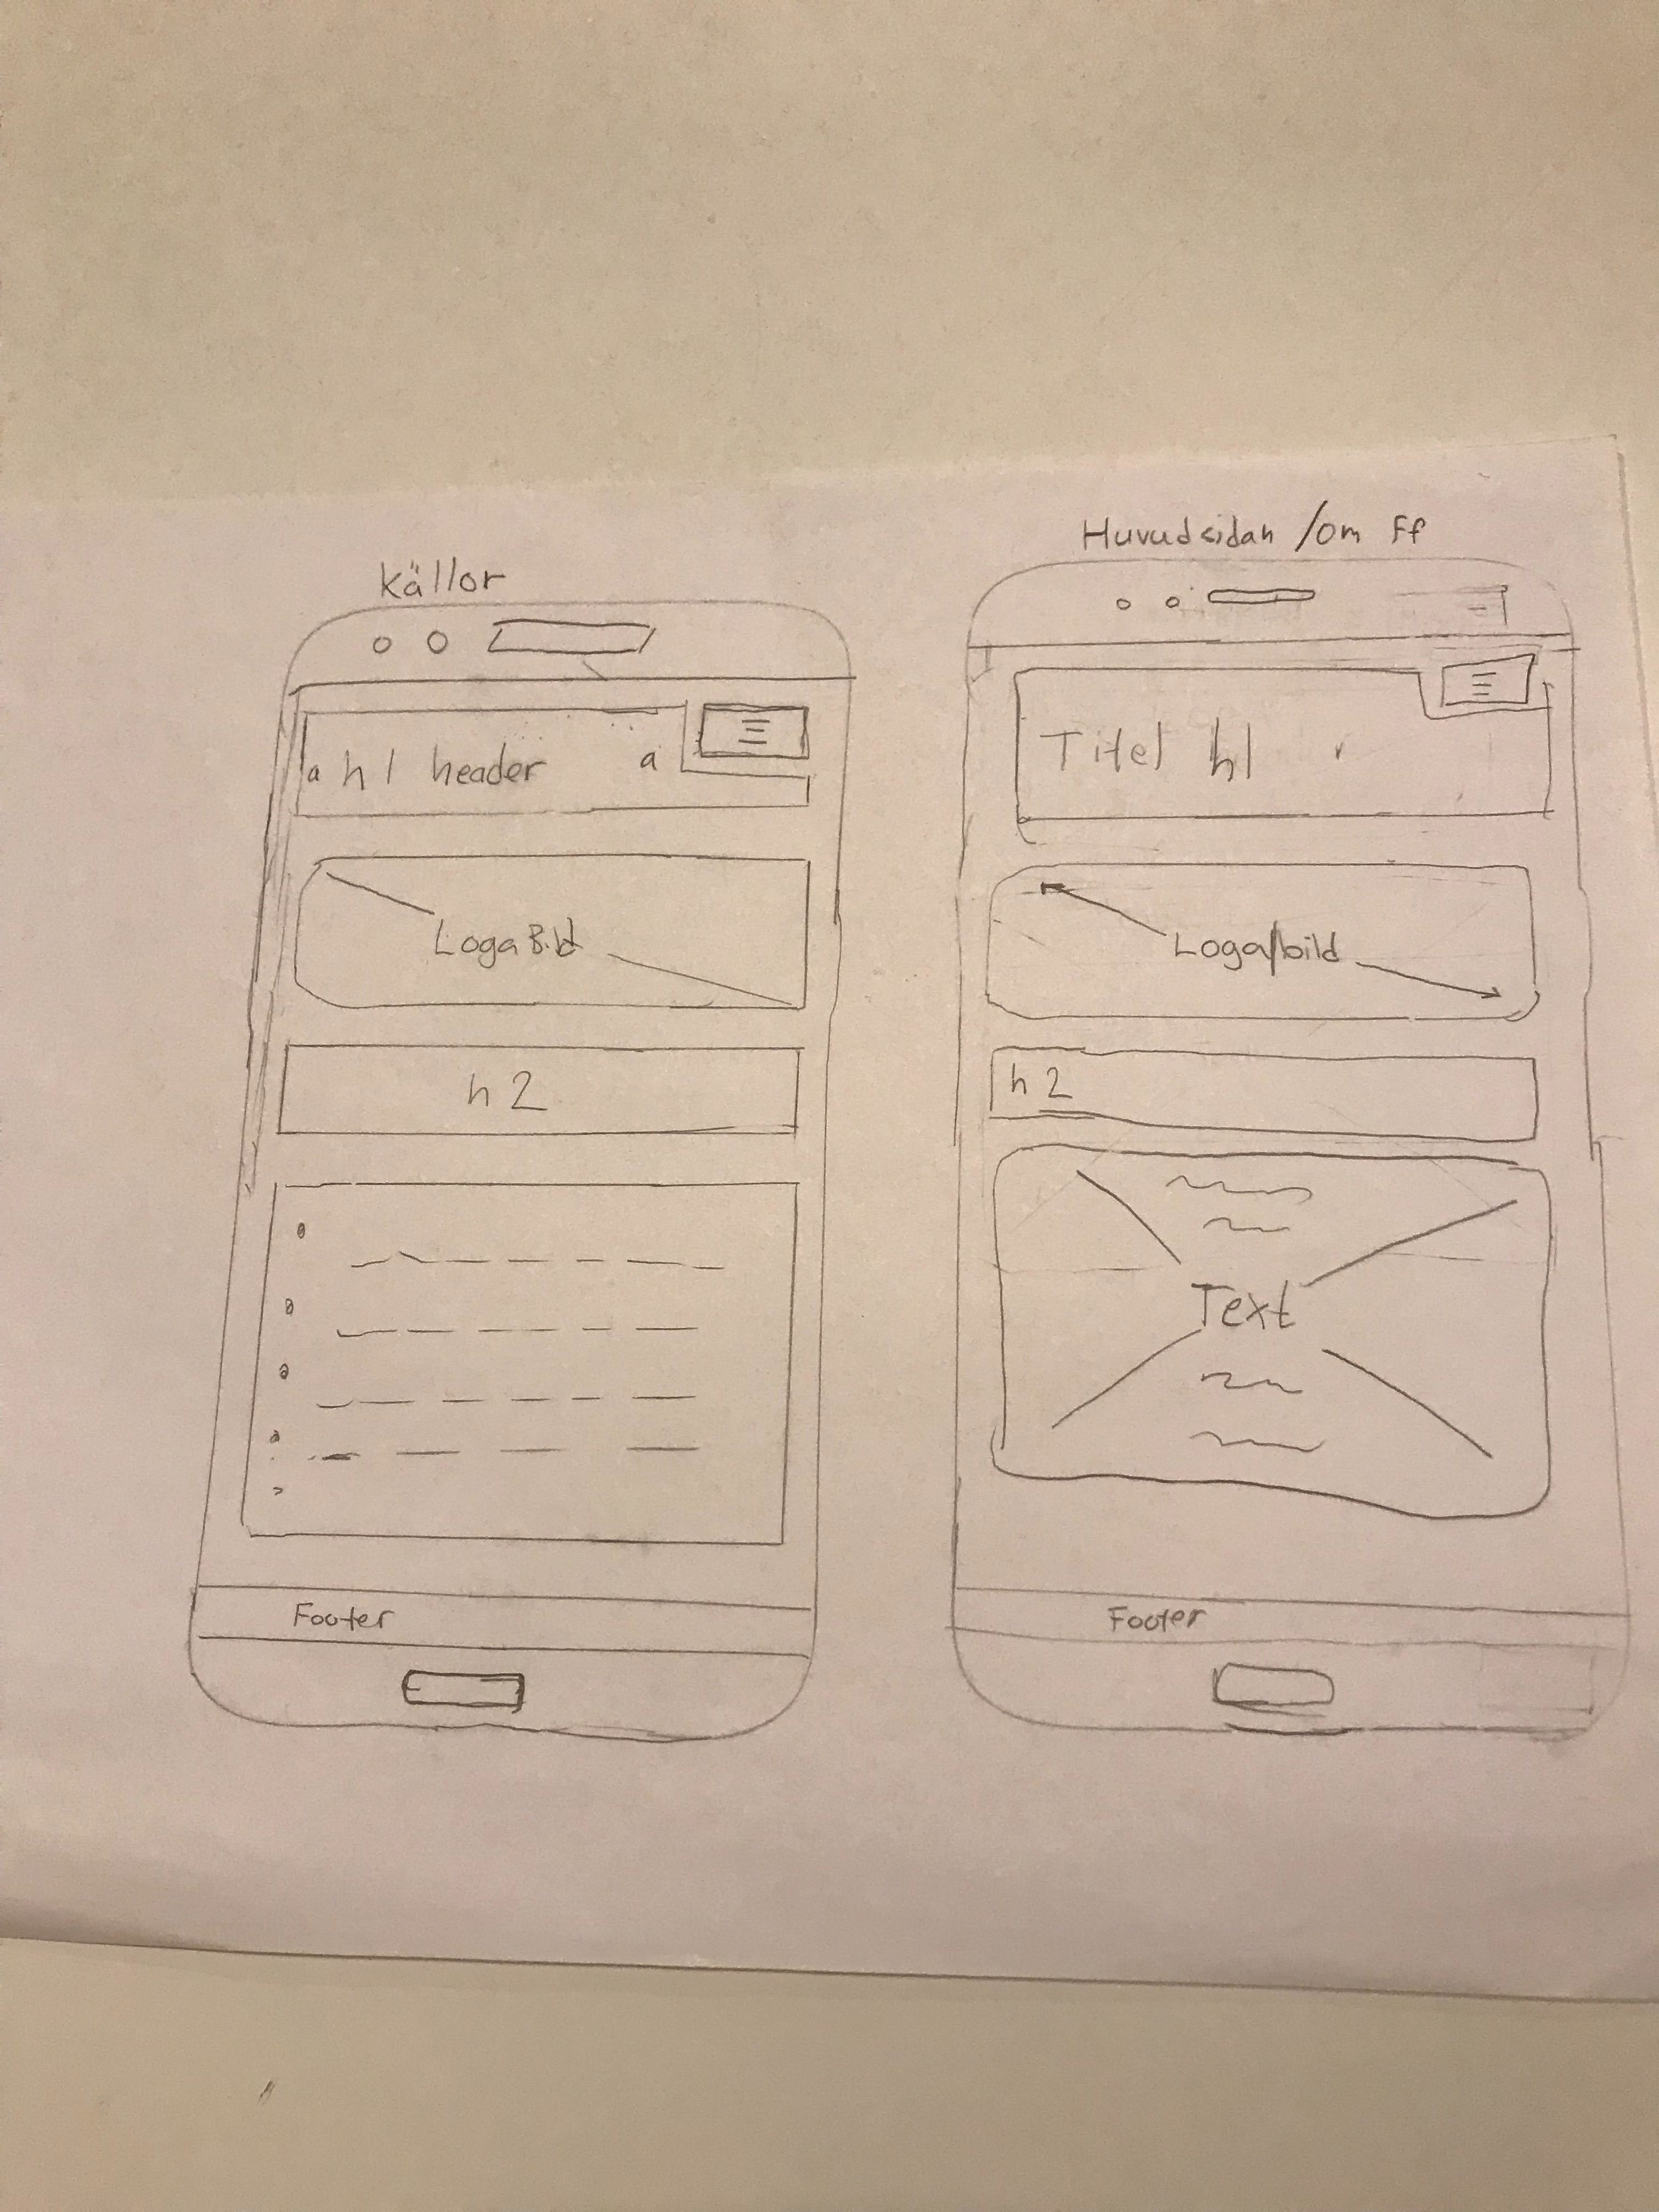 Källor
a h1 header a
Loga Bild
h2
Footer
Huvudsidan /om FF
Titel h1
Loga/bild
h2
Text
Footer